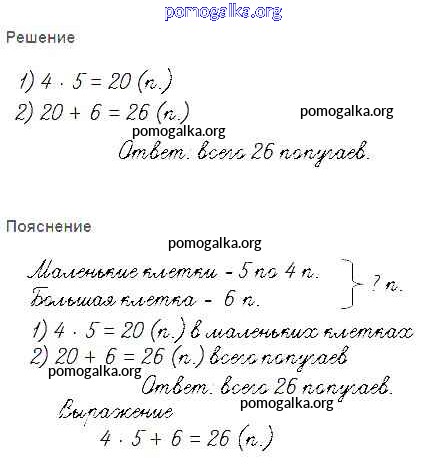 pomogalka.org
Решение
1) 4 · 5 = 20 (п.)
2) 20 + 6 = 26 (п.)
pomogalka.org
pomogalka.org
Ответ: всего 26 попугаев.
Пояснение
pomogalka.org
Маленькие клетки - 5 по 4 п.
? п.
Большая клетка - 6 п.
1) 4 · 5 = 20 (п.) в маленьких клетках
2) 20 + 6 = 26 (п.) всего попугаев
pomogalka.org
Ответ: всего 26 попугаев.
pomogalka.org
Выражение
4 · 5 + 6 = 26 (п.)